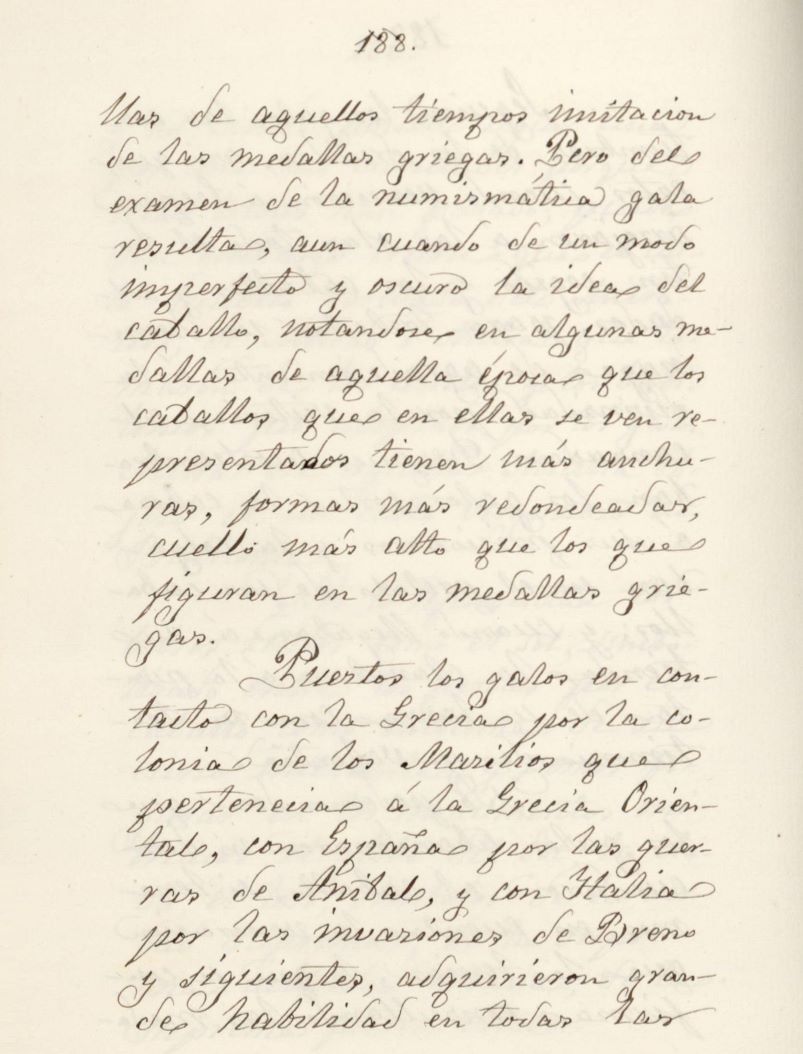 188.
llas de aquellos tiempos imitacion
de las medallas griegas. Pero del
examen de la numismática gala
resulta, aun cuando de un modo
imperfecto y oscuro la idea del
caballo, notandose en algunas me-
dallas de aquella época que los
caballos que en ellas se ven re-
presentados tienen más anchu-
ras, formas más redondeadas,
cuello más alto que los que
figuran en las medallas grie-
gas.
Puestos los galos en con-
tacto con la Grecia por la co-
lonia de los Masilios que
pertenecia á la Grecia Orien-
tal, con España por las guer-
ras de Anibal, y con Italia
por las invasiones de Breno
y siguientes, adquirieron gran-
de habilidad en todas las